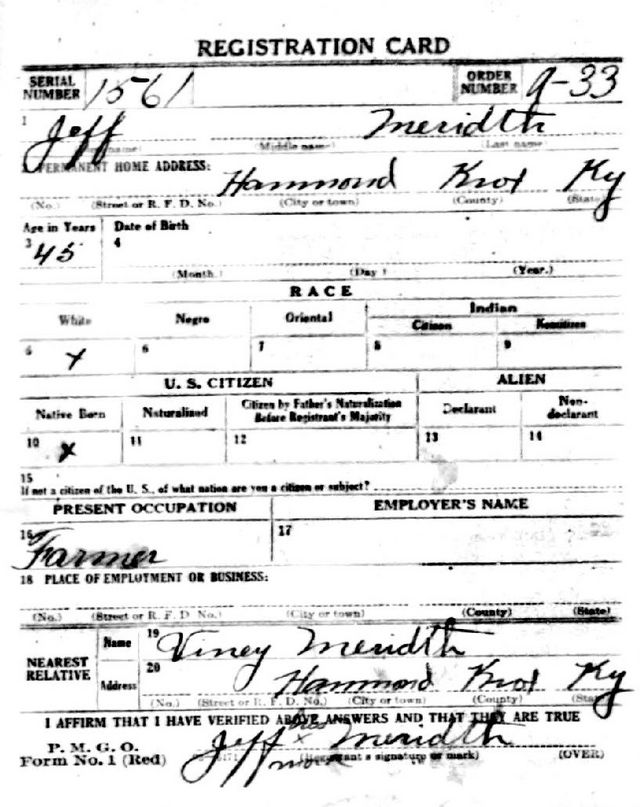 REGISTRATION CARD
SERIAL NUMBER 1561 ORDER NUMBER A-33
1 Jeff Meridth
(First name) (Middle name) (Last name)
2 PERMANENT HOME ADDRESS:
Hammond Knox Ky
(No.) (Street or R. F. D. No.) (City or town) (County) (State)
Age in Years Date of Birth
3 45 4
(Month.) (Day) (Year.)
RACE
White Negro Oriental Indian
Citizen Noncitizen
5 x 6 7 8 9
U. S. CITIZEN ALIEN
Native Born Naturalized Citizen by Father's Naturalization Before Registrant's Majority Declarant Non-declarant
10 x 11 12 13 14
15
If not a citizen of the U. S., of what nation are you a citizen or subject?
PRESENT OCCUPATION EMPLOYER'S NAME
16 Farmer 17
18 PLACE OF EMPLOYMENT OR BUSINESS:
(No.) (Street or R. F. D. No.) (City or town) (County) (State)
NEAREST RELATIVE Name 19 Viney Meridth
Address 20 Hammond Knox Ky
(No.) (Street or R. F. D. No.) (City or town) (County) (State)
I AFFIRM THAT I HAVE VERIFIED ABOVE ANSWERS AND THAT THEY ARE TRUE
P. M. G. O.
Form No. 1 (Red) Jeff his x mark Meridth
(Registrant's signature or mark) (OVER)